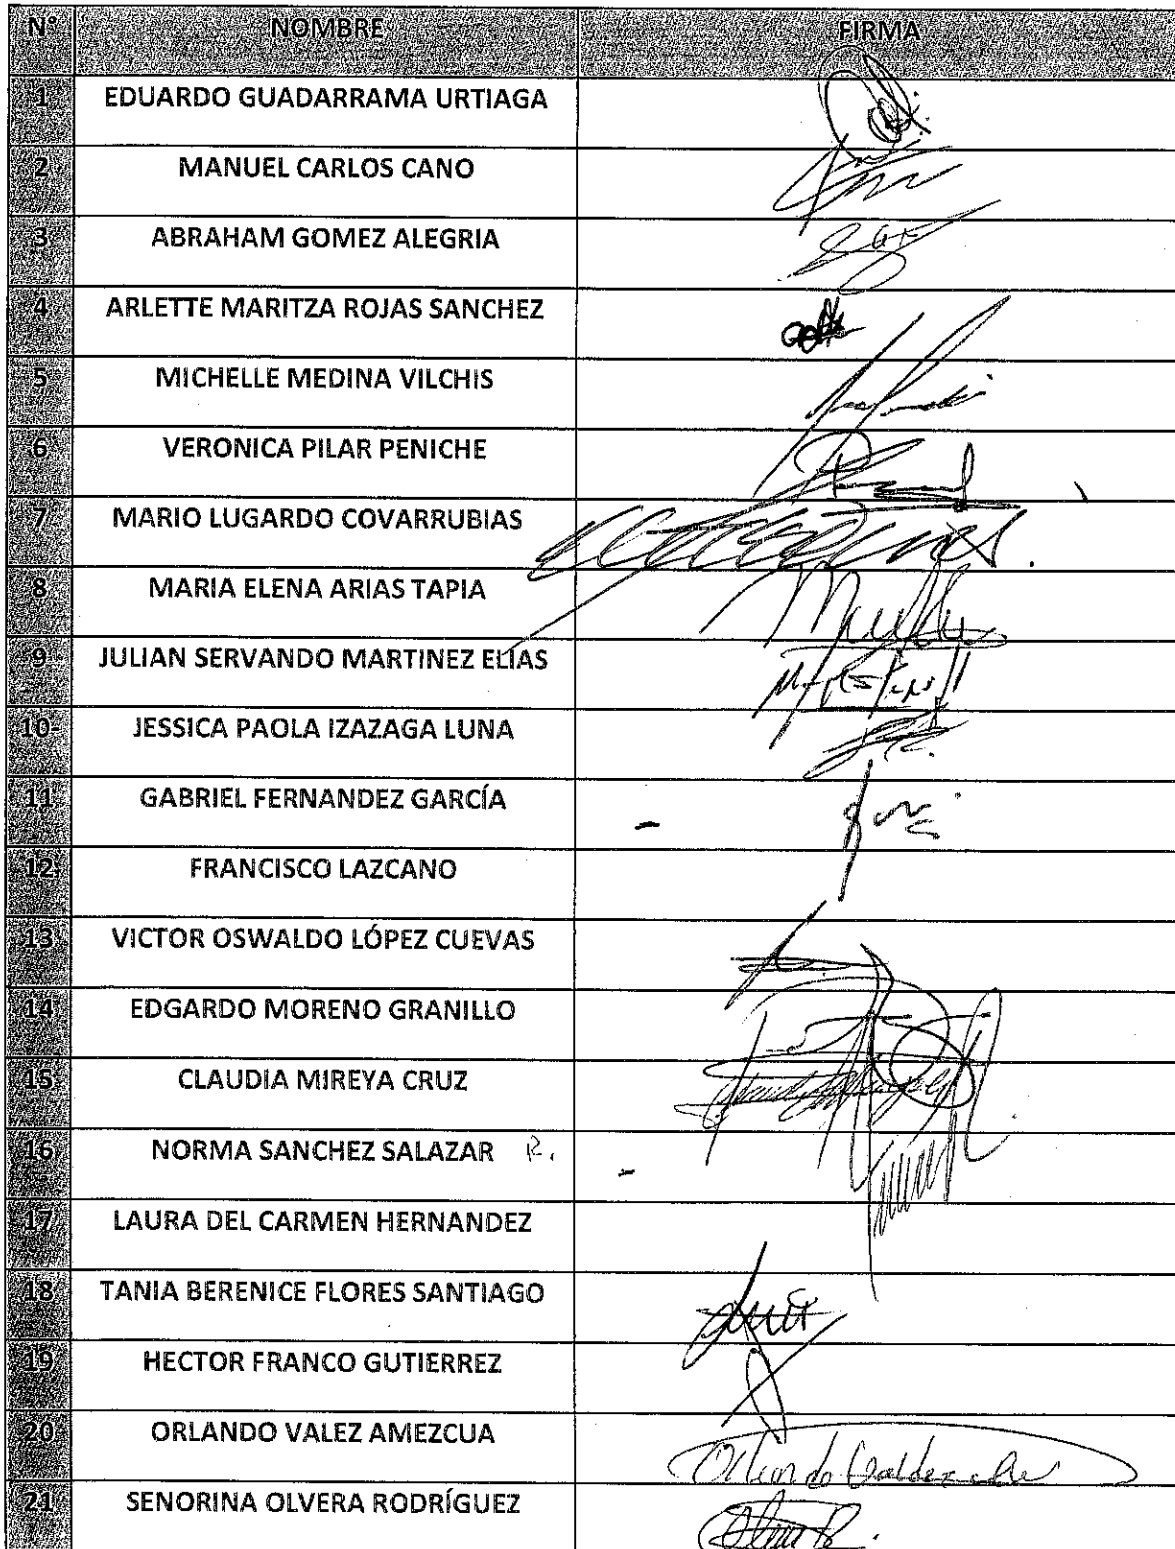 N° NOMBRE FIRMA
1 EDUARDO GUADARRAMA URTIAGA
2 MANUEL CARLOS CANO
3 ABRAHAM GOMEZ ALEGRIA
4 ARLETTE MARITZA ROJAS SANCHEZ
5 MICHELLE MEDINA VILCHIS
6 VERONICA PILAR PENICHE
7 MARIO LUGARDO COVARRUBIAS
8 MARIA ELENA ARIAS TAPIA
9 JULIAN SERVANDO MARTINEZ ELIAS
10 JESSICA PAOLA IZAZAGA LUNA
11 GABRIEL FERNANDEZ GARCÍA
12 FRANCISCO LAZCANO
13 VICTOR OSWALDO LÓPEZ CUEVAS
14 EDGARDO MORENO GRANILLO
15 CLAUDIA MIREYA CRUZ
16 NORMA SANCHEZ SALAZAR R.
17 LAURA DEL CARMEN HERNANDEZ
18 TANIA BERENICE FLORES SANTIAGO
19 HECTOR FRANCO GUTIERREZ
20 ORLANDO VALEZ AMEZCUA
21 SENORINA OLVERA RODRÍGUEZ